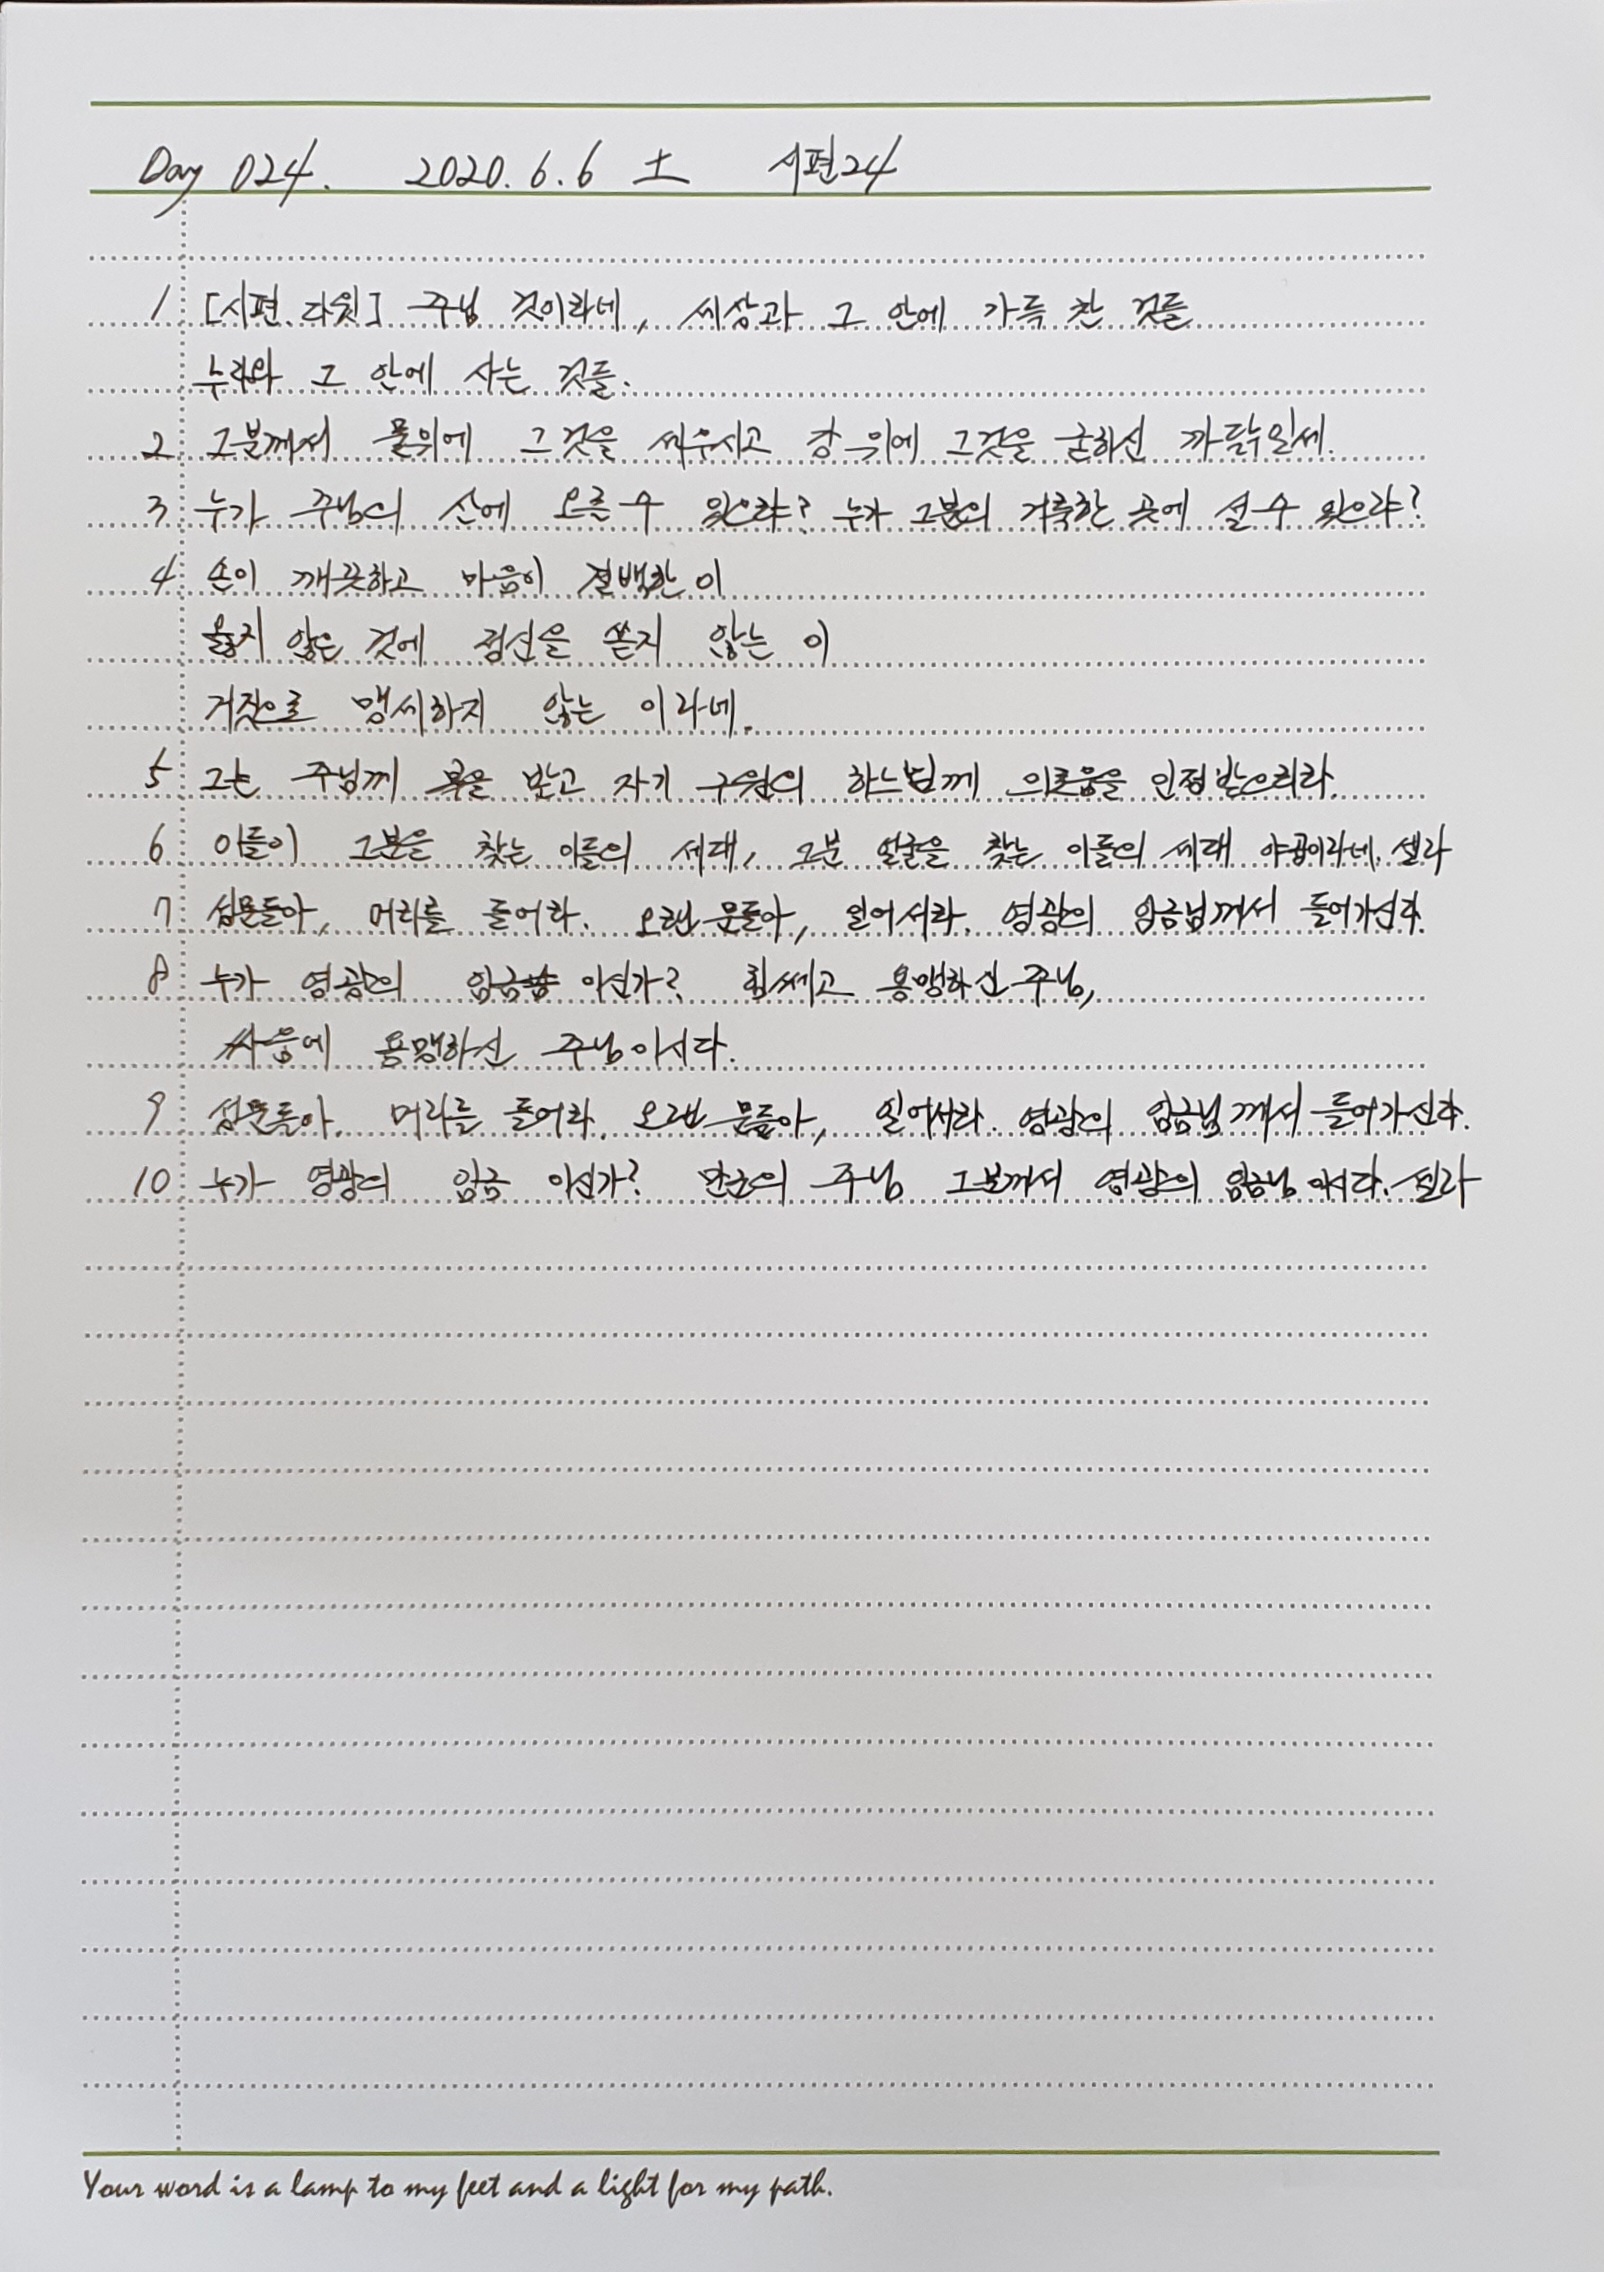 Day 024. 2020. 6. 6 土 시편24
1 [시편. 다윗] 주님 것이라네, 세상과 그 안에 가득 찬 것들
누리와 그 안에 사는 것들.
2 그분께서 물위에 그것을 세우시고 강 위에 그것을 굳히신 까닭일세.
3 누가 주님의 산에 오를 수 있으랴? 누가 그분의 거룩한 곳에 설 수 있으랴?
4 손이 깨끗하고 마음이 결백한 이
옳지 않은 것에 정신을 쏟지 않는 이
거짓으로 맹세하지 않는 이라네.
5 그는 주님께 복을 받고 자기 구원의 하느님께 의로움을 인정받으리라.
6 이들이 그분을 찾는 이들의 세대, 그분 얼굴을 찾는 이들의 세대 야곱이라네. 셀라
7 성문들아, 머리를 들어라. 오랜 문들아, 일어서라. 영광의 임금님께서 들어가신다.
8 누가 영광의 임금 이신가? 힘세고 용맹하신 주님,
싸움에 용맹하신 주님이시다.
9 성문들아. 머리를 들어라. 오랜 문들아, 일어서라. 영광의 임금님께서 들어가신다.
10 누가 영광의 임금 이신가? 만군의 주님 그분께서 영광의 임금님 이시다. 셀라
Your word is a lamp to my feet and a light for my path.